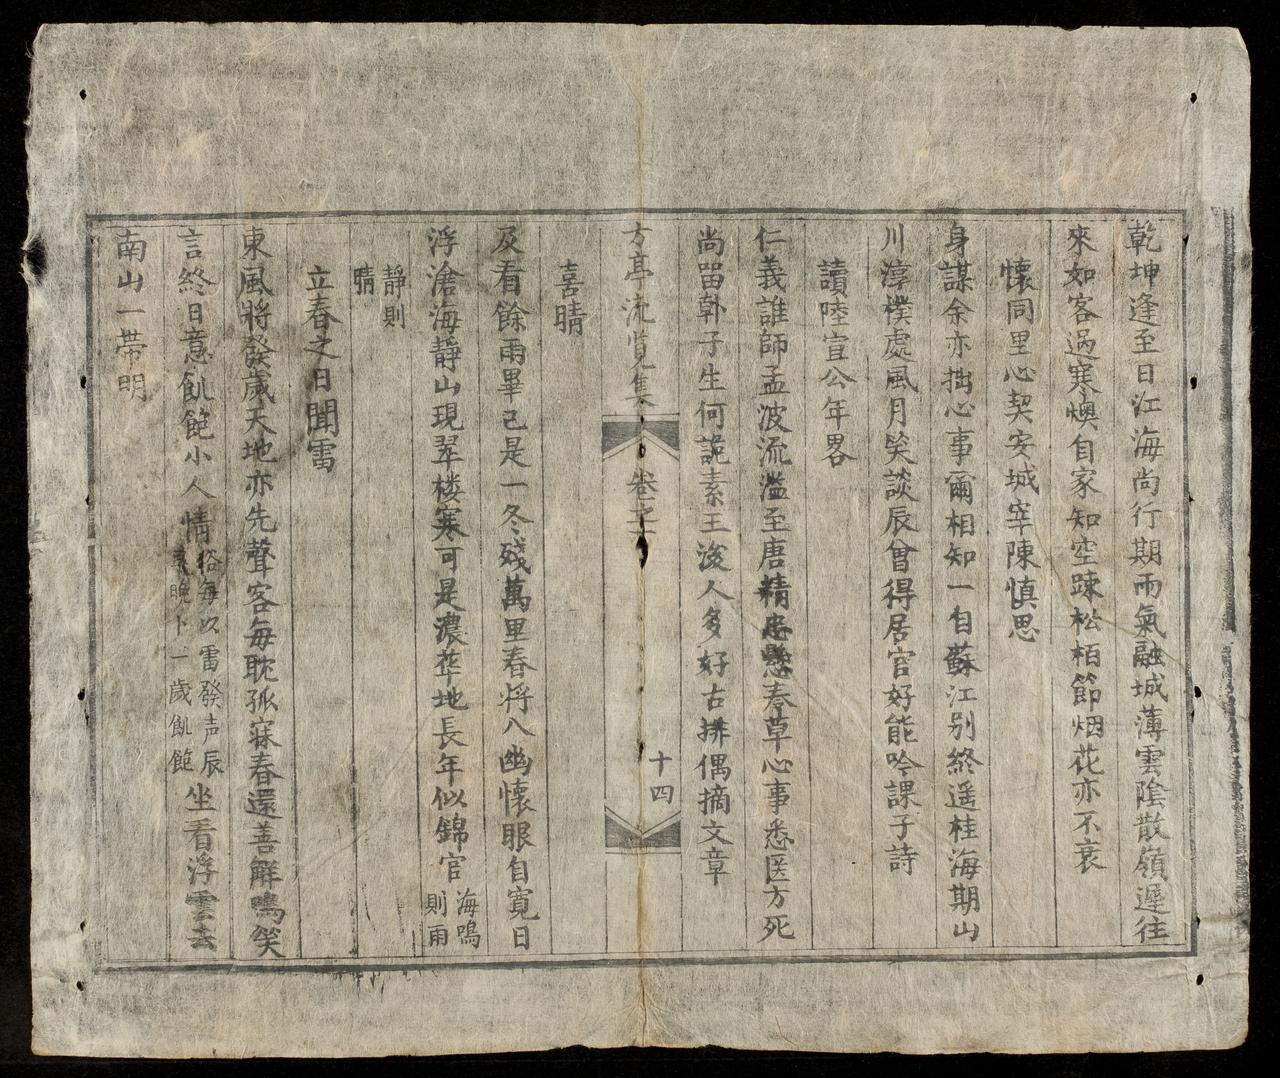 乾坤逢至日江海尚行期雨氣融城薄雲陰散嶺遲往
來如客過寒燠自家知空踈松栢節烟花亦不衰
懷同里心契安城宰陳慎思
身謀余亦拙心事爾相知一自蘇江別終遥桂海期山
川淳樸處風月笑談辰曾得居官好能吟課子詩
讀陸宣公年畧
仁義誰師孟波流濫至唐精忠懸奏草心事悉医方死
尚留卧子生何詭素王後人多好古排偶摘文章
方亭流覧集
卷之一
十四
喜晴
及看餘雨畢已是一冬殘萬里春将入幽懷眼自寛日
浮滄海靜山現翠楼寒可是濃華地長年似錦官
海鳴
則雨
靜則
晴
立春之日聞雷
東風將發歲天地亦先聲客每耽孤寐春還善解鳴笑
言終日意飢飽小人情
俗每以雷發声辰
晚卜一歲飢飽
坐看浮雲去
南山一帶明